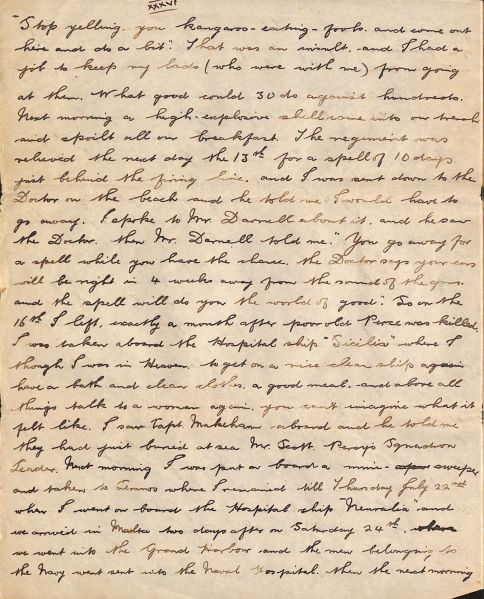 XXXVI
"Stop yelling, you kangaroo-eating-fools, and come out
here and do a bit". That was an insult, and I had a
job to keep my lads (who were with me) from going
at them. What good could 30 do against hundreds.
Next morning a high-explosive shell came into our trench
and spoilt all our breakfast. The regiment was
relieved the next day the 13th for a spell of 10 days
just behind the firing line, and I was sent down to the
Doctor on the beach and he told me I would have to
go away. I spoke to Mr. Darnell about it, and he saw
the Doctor, then Mr. Darnell told me. "You go away for
a spell while you have the chance, the Doctor says your ears
will be right in 4 weeks away from the sound of the guns
and the spell will do you the world of good". So on the
16th I left, exactly a month after poor old Perce was killed.
I was taken aboard the Hospital ship "Sicilia" where I
though I was in Heaven, to get on a nice clean ship again
have a bath and clean clothes, a good meal, and above all
things talk to a woman again, you can't imagine what it
felt like. I saw Capt. Makeham aboard and he told me
they had just buried at sea Mr. Scott, Percy's Squadron
Leader. Next morning I was put on board a mine-sweeper
and taken to Lemnos where I remained till Thursday July 22nd
when I went on board the Hospital ship "Neuralia" and
we arrived in Malta two days after on Saturday 24th, where
we went into the Grand Harbor and the men belonging to
the Navy went sent into the Naval Hospital, then the next morning